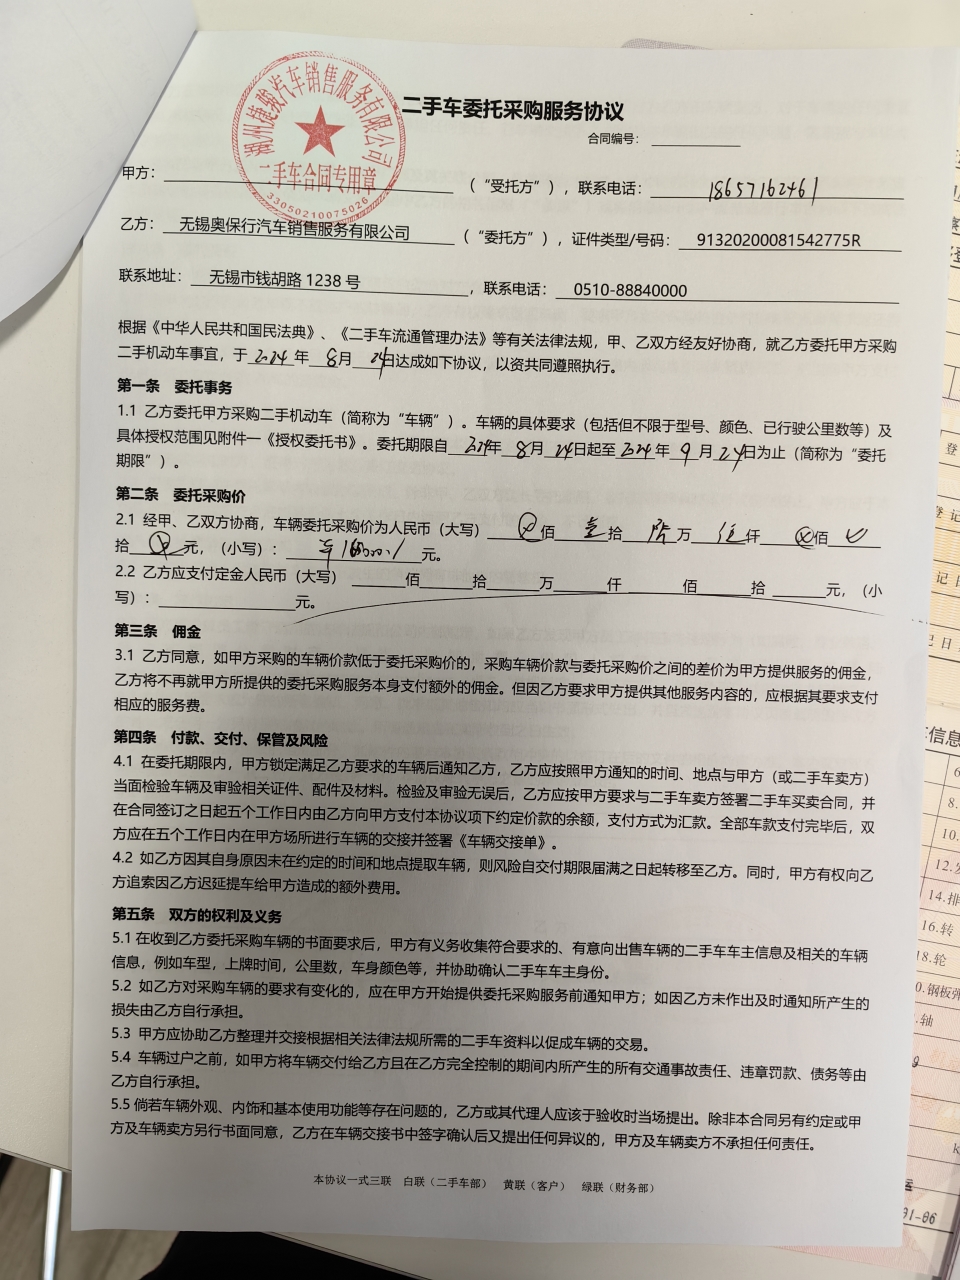 湖州捷骏汽车销售服务有限公司
二手车合同专用章
33050210075028
二手车委托采购服务协议
合同编号：
甲方： （“受托方”），联系电话： 18657162461
乙方： 无锡奥保行汽车销售服务有限公司 （“委托方”），证件类型/号码： 91320200081542775R
联系地址： 无锡市钱胡路 1238 号 ，联系电话： 0510-88840000
根据《中华人民共和国民法典》、《二手车流通管理办法》等有关法律法规，甲、乙双方经友好协商，就乙方委托甲方采购
二手机动车事宜，于 2024 年 8 月 24 日达成如下协议，以资共同遵照执行。
第一条 委托事务
1.1 乙方委托甲方采购二手机动车（简称为“车辆”）。车辆的具体要求（包括但不限于型号、颜色、已行驶公里数等）及
具体授权范围见附件一《授权委托书》。委托期限自 2024 年 8 月 24 日起至 2024 年 9 月 24 日为止（简称为“委托
期限”）。
第二条 委托采购价
2.1 经甲、乙双方协商，车辆委托采购价为人民币（大写） 佰 壹 拾 万 仟 佰
拾 元，（小写）： 元。
2.2 乙方应支付定金人民币（大写） 佰 拾 万 仟 佰 拾 元，（小
写）： 元。
第三条 佣金
3.1 乙方同意，如甲方采购的车辆价款低于委托采购价的，采购车辆价款与委托采购价之间的差价为甲方提供服务的佣金，
乙方将不再就甲方所提供的委托采购服务本身支付额外的佣金。但因乙方要求甲方提供其他服务内容的，应根据其要求支付
相应的服务费。
第四条 付款、交付、保管及风险
4.1 在委托期限内，甲方锁定满足乙方要求的车辆后通知乙方，乙方应按照甲方通知的时间、地点与甲方（或二手车卖方）
当面检验车辆及审验相关证件、配件及材料。检验及审验无误后，乙方应按甲方要求与二手车卖方签署二手车买卖合同，并
在合同签订之日起五个工作日内由乙方向甲方支付本协议项下约定价款的余额，支付方式为汇款。全部车款支付完毕后，双
方应在五个工作日内在甲方场所进行车辆的交接并签署《车辆交接单》。
4.2 如乙方因其自身原因未在约定的时间和地点提取车辆，则风险自交付期限届满之日起转移至乙方。同时，甲方有权向乙
方追索因乙方迟延提车给甲方造成的额外费用。
第五条 双方的权利及义务
5.1 在收到乙方委托采购车辆的书面要求后，甲方有义务收集符合要求的、有意向出售车辆的二手车车主信息及相关的车辆
信息，例如车型，上牌时间，公里数，车身颜色等，并协助确认二手车车主身份。
5.2 如乙方对采购车辆的要求有变化的，应在甲方开始提供委托采购服务前通知甲方；如因乙方未作出及时通知所产生的
损失由乙方自行承担。
5.3 甲方应协助乙方整理并交接根据相关法律法规所需的二手车资料以促成车辆的交易。
5.4 车辆过户之前，如甲方将车辆交付给乙方且在乙方完全控制的期间内所产生的所有交通事故责任、违章罚款、债务等由
乙方自行承担。
5.5 倘若车辆外观、内饰和基本使用功能等存在问题的，乙方或其代理人应该于验收时当场提出。除非本合同另有约定或甲
方及车辆卖方另行书面同意，乙方在车辆交接书中签字确认后又提出任何异议的，甲方及车辆卖方不承担任何责任。
本协议一式三联 白联（二手车部） 黄联（客户） 绿联（财务部）
登
登记
记
记日
信息
6
8.
10.
12.
14.排
16.转
18.轮
钢板弹
轴
91-06